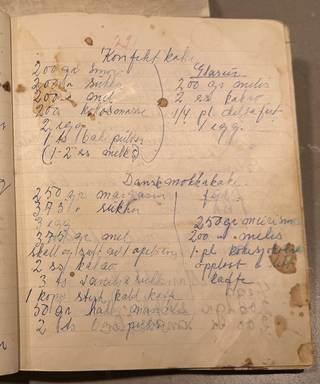 Konfekt kake
200 gr smør
200 gr sukker
200 gr mel
200 gr kokosmasse
2 egg
1 ts bakepulver
(1-2 ss melk)
Glasur
200 gr melis
2 ss kakao
1/4 pl. delfiafett
1 egg.
Dansk mokkakake
250 gr margarin
375 " sukker
3 egg
375 gr mel
skall og saft av 1 apelsin
2 ss kakao
3 ts vanilje sukker
1 kopp sterk kald kaffe
50 gr hakk. mandler
2 ts
Fyll:
250 gr
200 " melis
1 pl.
oppløst i
kaffe